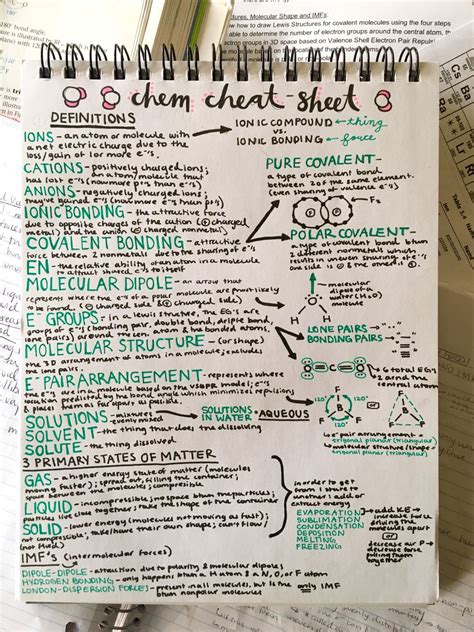 ctures, Molecular Shape and IMFs:
how to draw Lewis Structures for covalent molecules using the four steps
able to determine the number of electron groups around the central atom, th
ectron groups in 3D space based on Valence Shell Electron Pair Repuls
chem cheat-sheet
DEFINITIONS
IONS - an atom or molecule with
a net electric charge due to the
loss/gain of 1 or more e-'s
CATIONS - positively charged ions;
an atom/molecule that
has lost e-'s (now more p+'s than e-'s)
ANIONS - negatively charged ions;
they've gained e-'s (now more e-'s than p+'s)
IONIC BONDING - the attractive force
due to opposite charges of the cation (⊕ charged
metal) and the anion (⊖ charged nonmetal)
COVALENT BONDING - attractive
force between 2 nonmetals due to the sharing of e-'s
EN - the relative ability of an atom in a molecule
to attract shared e-'s to itself
MOLECULAR DIPOLE - an arrow that
represents where the e-'s of a polar molecule are most likely
to be found. (⊖ charged side & ⊕ charged side)
E- GROUPS - in a lewis structure, the EG's are
groups of e-'s (bonding pair, double bond, triple bond,
lone pairs) around the central atom & the bonded atoms
MOLECULAR STRUCTURE - (or shape)
the 3D arrangement of atoms in a molecule; excludes
the lone pairs.
E- PAIR ARRANGEMENT - represents where
SOLUTIONS - mixtures
evenly mixed
SOLUTIONS
IN WATER = AQUEOUS
SOLVENT - the thing that does the dissolving
SOLUTE - the thing dissolved
IONIC COMPOUND - thing
vs.
IONIC BONDING - force
PURE COVALENT -
a type of covalent bond
between 2 of the same element.
(even sharing of valence e-'s)
F
F
POLAR COVALENT -
a type of covalent bond btwn
2 different nonmetals which
results in uneven sharing of e-'s
one side is ⊕ & the other is ⊖.
O
H
H
molecular
dipole of a
water (H2O)
molecule
LONE PAIRS
BONDING PAIRS
O
C
O
6 total EG's
central atom
F
120°
120°
120°
F
F
or
F
B
F
F
e- pair arrangement =
trigonal planar (triangular)
molecular structure (shape) =
trigonal planar (triangular)
3 PRIMARY STATES OF MATTER
GAS - a higher energy state of matter (molecules
moving faster); spread out, filling the container;
space between the molecules
LIQUID - incompressible; no space btwn the particles;
particles slide together; take the shape of the container
SOLID - lower energy (molecules not moving as fast);
not compressible; take/have their own shape; can't flow/
(not fluid)
in order to get
from 1 state to
another: add or
extract energy
EVAPORATION
SUBLIMATION
CONDENSATION
DEPOSITION
MELTING
FREEZING
add KE =
increase force
driving the
molecules apart
or
IMF's (intermolecular forces)
DIPOLE-DIPOLE - attraction due to polarity & molecular dipoles
HYDROGEN BONDING - only happens btwn a H atom & a N, O, or F atom
LONDON-DISPERSION FORCES - present in all molecules, but is the only IMF
btwn nonpolar molecules